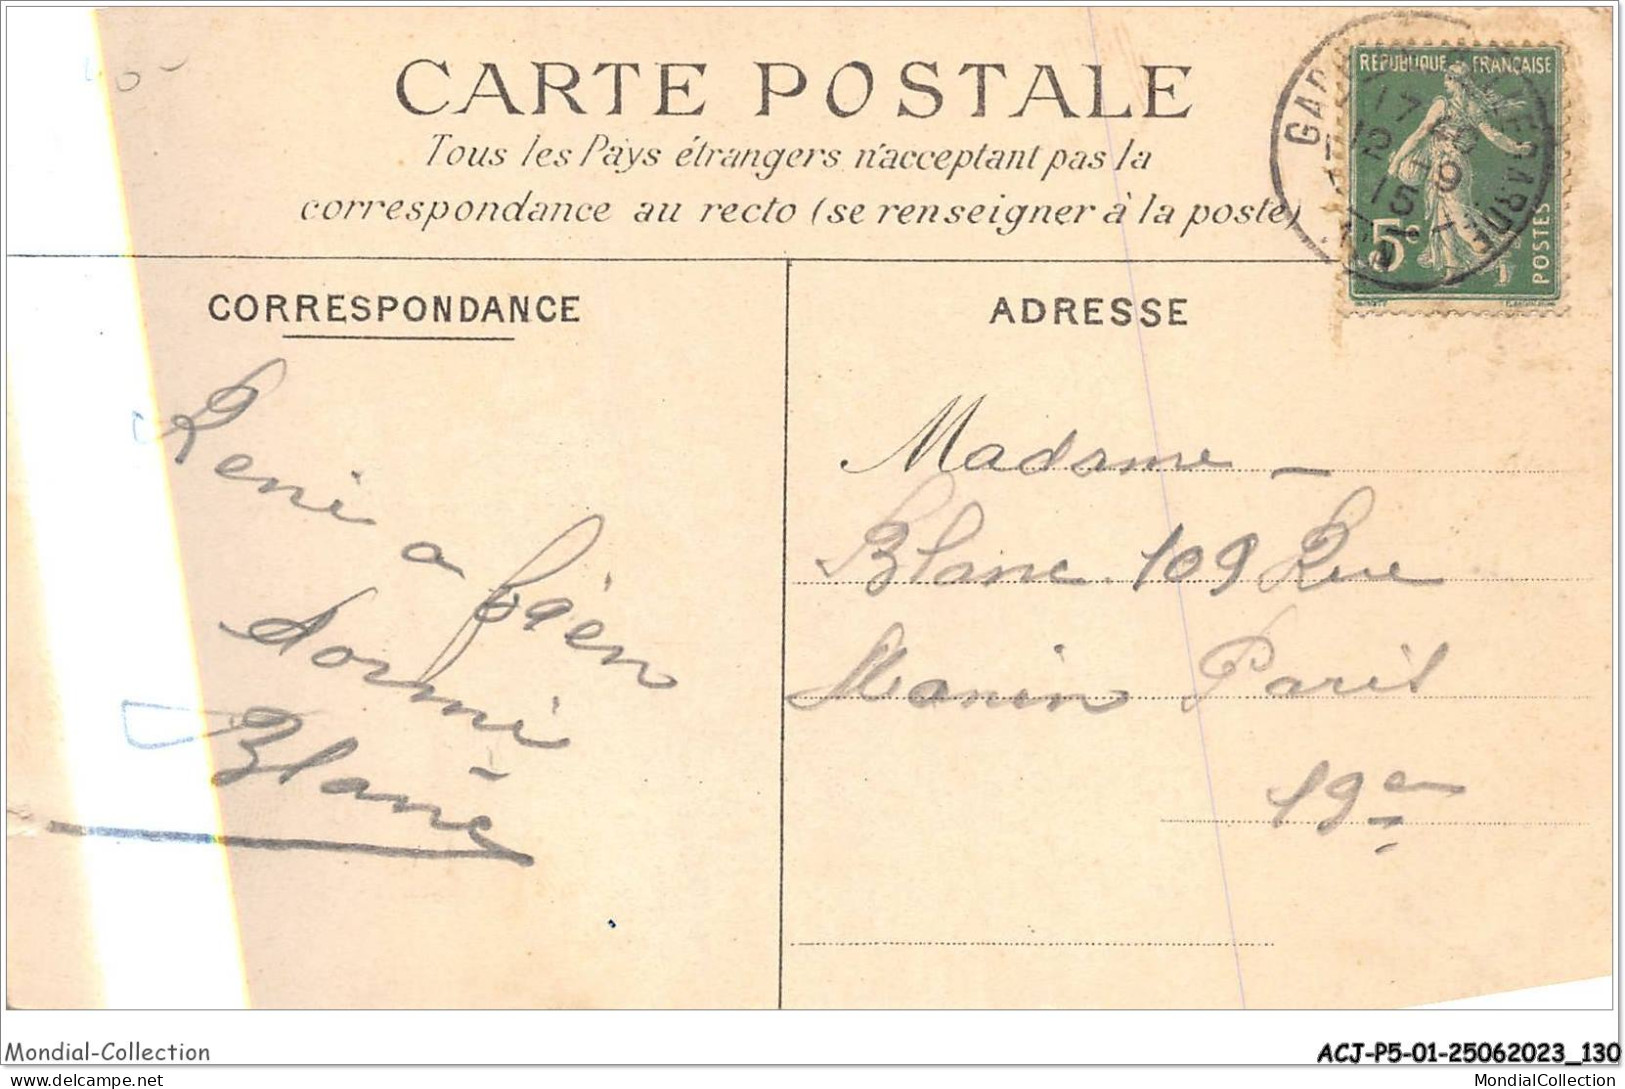 CARTE POSTALE
Tous les Pays étrangers n'acceptant pas la
correspondance au recto (se renseigner à la poste)
RÉPUBLIQUE FRANÇAISE
5c
POSTES
CORRESPONDANCE
ADRESSE
René a bien
dormi
Blanc
Madame
Blanc 109 Rue
Manin Paris
19e
Mondial-Collection
ACJ-P5-01-25062023_130
delcampe.net
MondialCollection